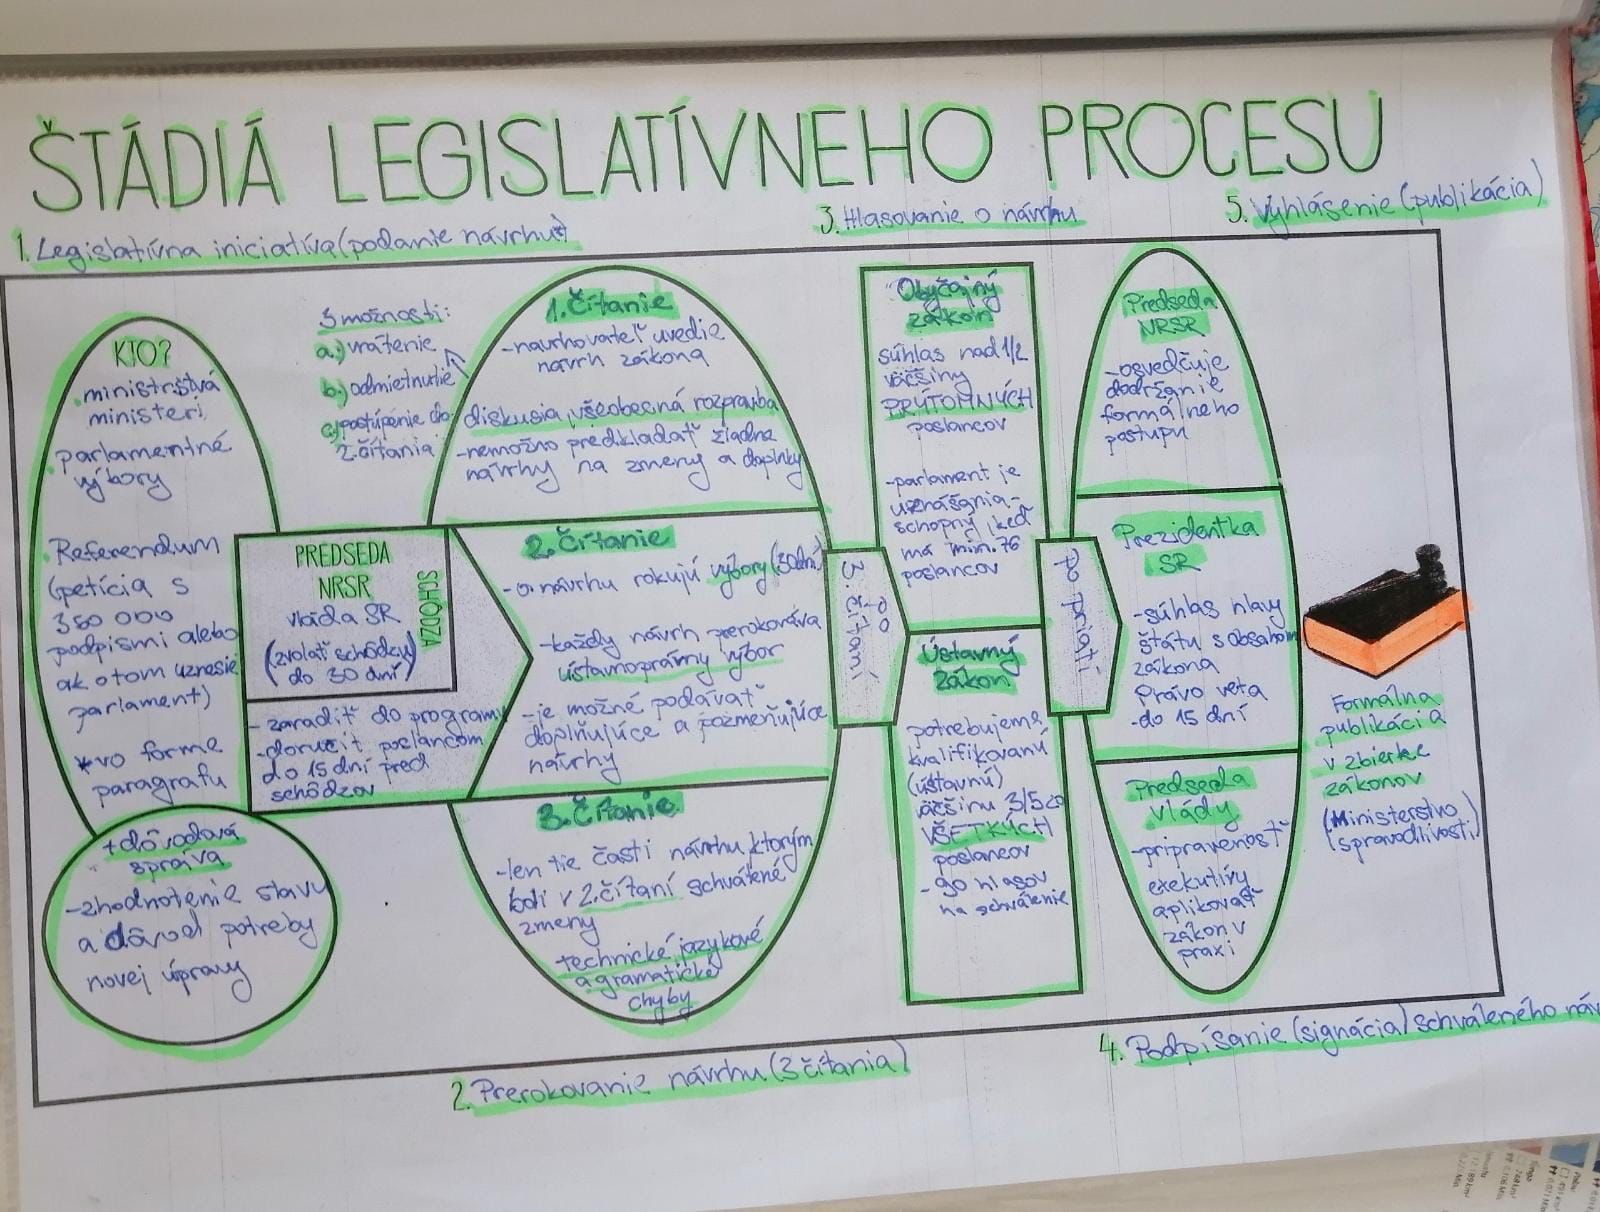 ŠTÁDIÁ LEGISLATÍVNEHO PROCESU
1. Legislatívna iniciatíva (podanie návrhu)
3. Hlasovanie o návrhu
5. Vyhlásenie (publikácia)
KTO?
ministrstvá
ministeri
parlamentné
výbory
Referendum
(petícia s
350 000
podpismi alebo
ak o tom uznesie
parlament)
*vo forme
paragrafu
+ dôvodová
správa
-zhodnotenie stavu
a dôvod potreby
novej úpravy
3 možnosti:
a.) vrátenie
b.) odmietnutie
c.) postúpenie do
2. čítania
PREDSEDA
NRSR
vláda SR
(zvolať schôdzu
do 30 dní)
SCHÔDZA
- zaradiť do programu
- doručiť poslancom
do 15 dní pred
schôdzov
1. Čítanie
-navrhovateľ uvedie
návrh zákona
diskusia, všeobecná rozprava
-nemožno predkladať žiadne
návrhy na zmeny a doplnky
2. Čítanie
-o návrhu rokujú výbory (30dní)
-každý návrh prerokováva
ústavnoprávny výbor
-je možné podávať
doplňujúce a pozmeňujúce
návrhy
3. Čítanie
-len tie časti návrhu, ktorým
boli v 2. čítaní schválené
zmeny
technické, jazykové
a gramatické
chyby
2. Prerokovanie návrhu (3 čítania)
Po
3. čítaní
Obyčajný
zákon
súhlas nad 1/2
väčšiny
PRÍTOMNÝCH
poslancov
-parlament je
uznášania-
schopný, keď
má min. 76
poslancov
Ústavný
zákon
potrebujeme
kvalifikovanú
(ústavnú)
väčšinu 3/5 zo
VŠETKÝCH
poslancov
- 90 hlasov
na schválenie
Po prijatí
Predseda
NRSR
-osvedčuje
dodržanie
formálneho
postupu
Prezidentka
SR
-súhlas hlavy
štátu s obsahom
zákona
Právo veta
- do 15 dní
Predseda
vlády
-pripravenosť
exekutívy
aplikovať
zákon v
praxi
Formálna
publikácia
v zbierke
zákonov
(Ministerstvo
spravodlivosti)
4. Podpísanie (signácia) schváleného náv